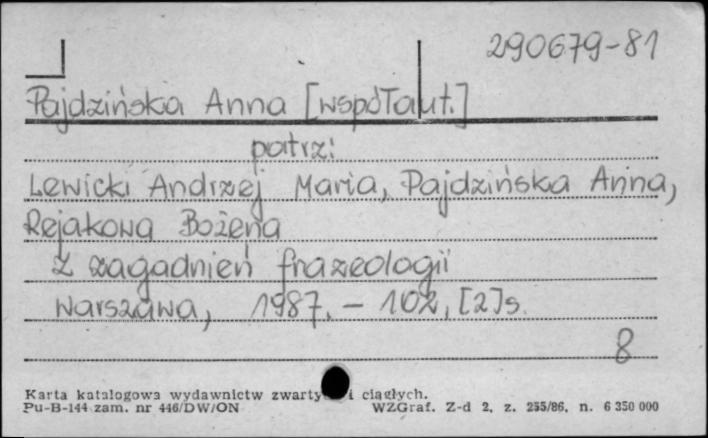 290679-81
Pajdzińska Anna [współaut.]
patrz:
Lewicki Andrzej Maria, Pajdzińska Anna,
Rejakowa Bożena
Z zagadnień frazeologii
Warszawa, 1987. - 102, [2] s.
8
Karta katalogowa wydawnictw i ciągłych.
Pu-B-144 zam. nr 446/DW/ON WZGraf. Z-d 2, z. 255/86, n. 6 350 000